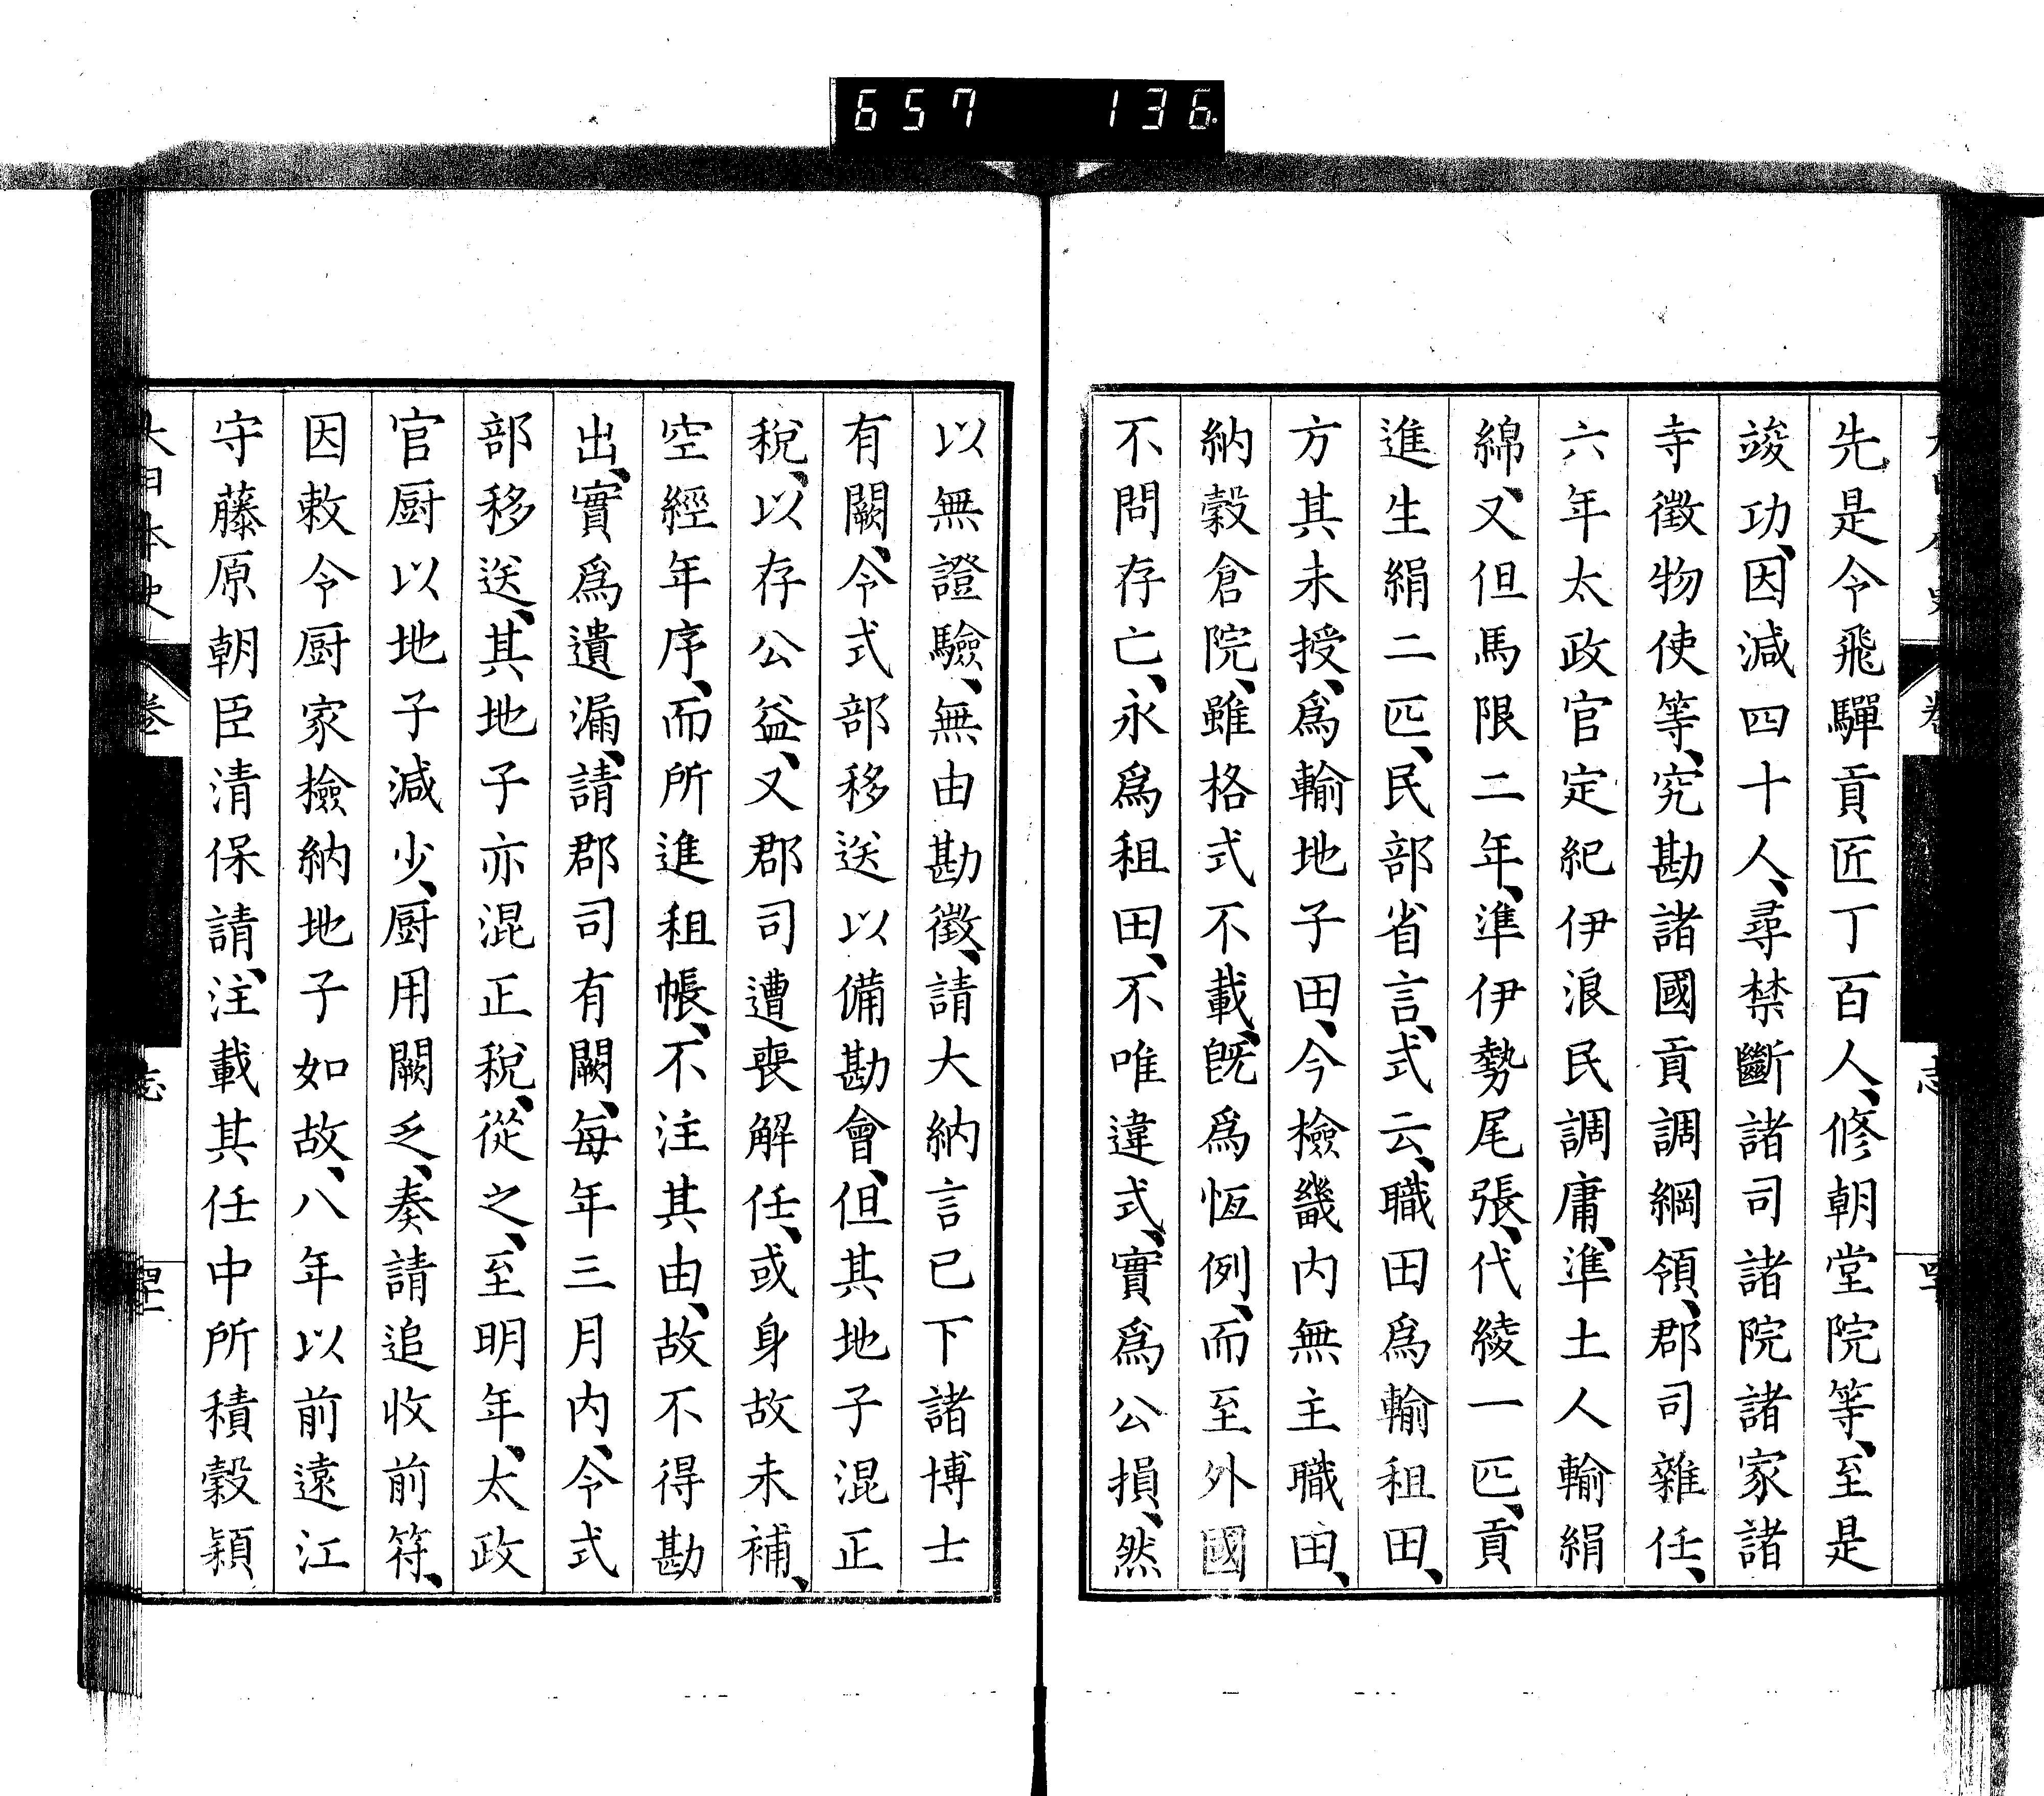 657 136
先是令飛驒貢匠丁百人、修朝堂院等、至是
竣功、因減四十人、尋禁斷諸司諸院諸家諸
寺徵物使等、究勘諸國貢調綱領、郡司雜任、
六年太政官定紀伊浪民調庸、準土人輸絹
綿、又但馬限二年、準伊勢尾張、代綾一匹、貢
進生絹二匹、民部省言、式云、職田爲輸租田、
方其未授、爲輸地子田、今檢畿内無主職田、
納穀倉院、雖格式不載、既爲恆例、而至外國
不問存亡、永爲租田、不唯違式、實爲公損、然
以無證驗、無由勘徵、請大納言已下諸博士
有闕、令式部移送以備勘會、但其地子混正
稅、以存公益、又郡司遭喪解任、或身故未補、
空經年序、而所進租帳、不注其由、故不得勘
出、實爲遺漏、請郡司有闕、每年三月内、令式
部移送、其地子亦混正稅、從之、至明年、太政
官厨以地子減少、厨用闕乏、奏請追收前符、
因敕令厨家檢納地子如故、八年以前遠江
守藤原朝臣清保請、注載其任中所積穀穎
大日本史 卷 志